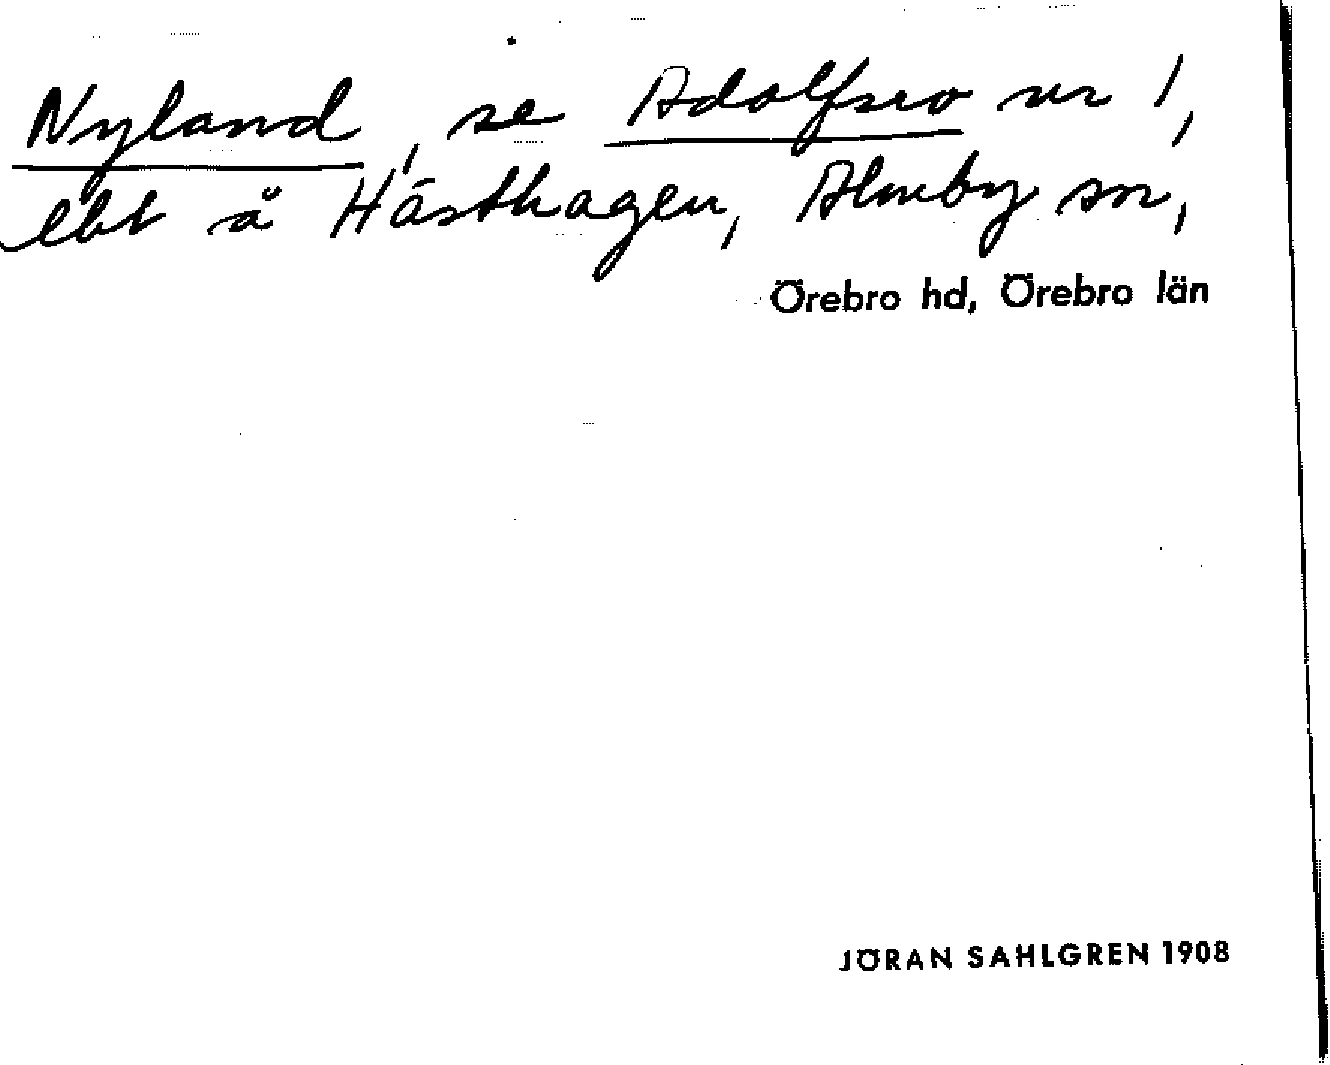 Nyland, se Adolfsro nr 1,
lht å Hästhagen, Almby sn,
Örebro hd, Örebro län
JÖRAN SAHLGREN 1908